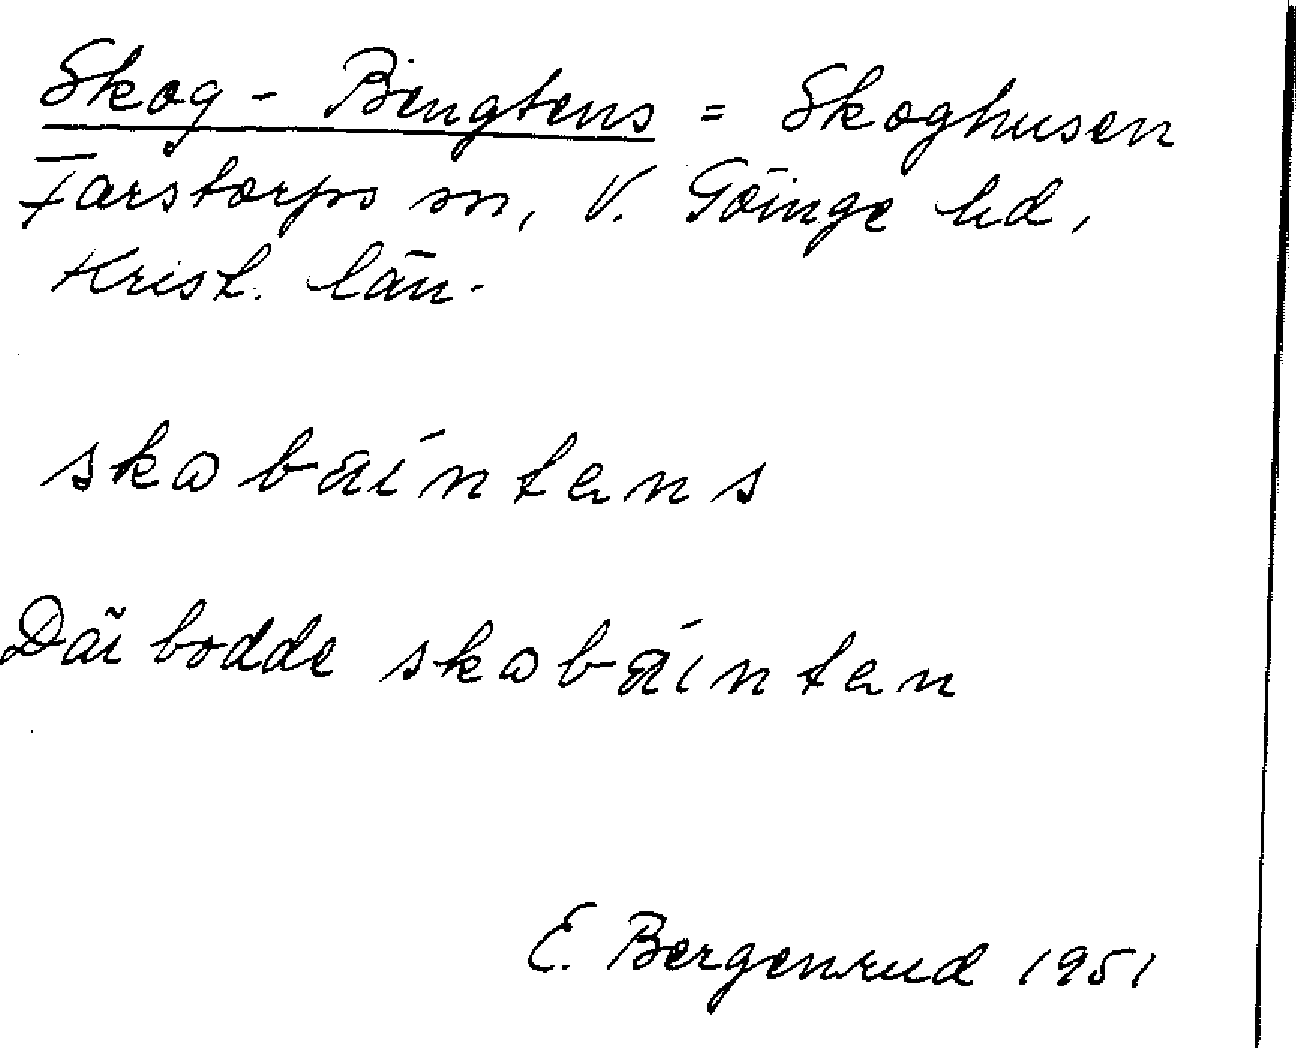 Skog-Bengtens = Skoghusen
Farstorps sn, V. Göinge hd,
Krist. län.
skobäintens
Där bodde skobäinten
E. Bergenrud 1951